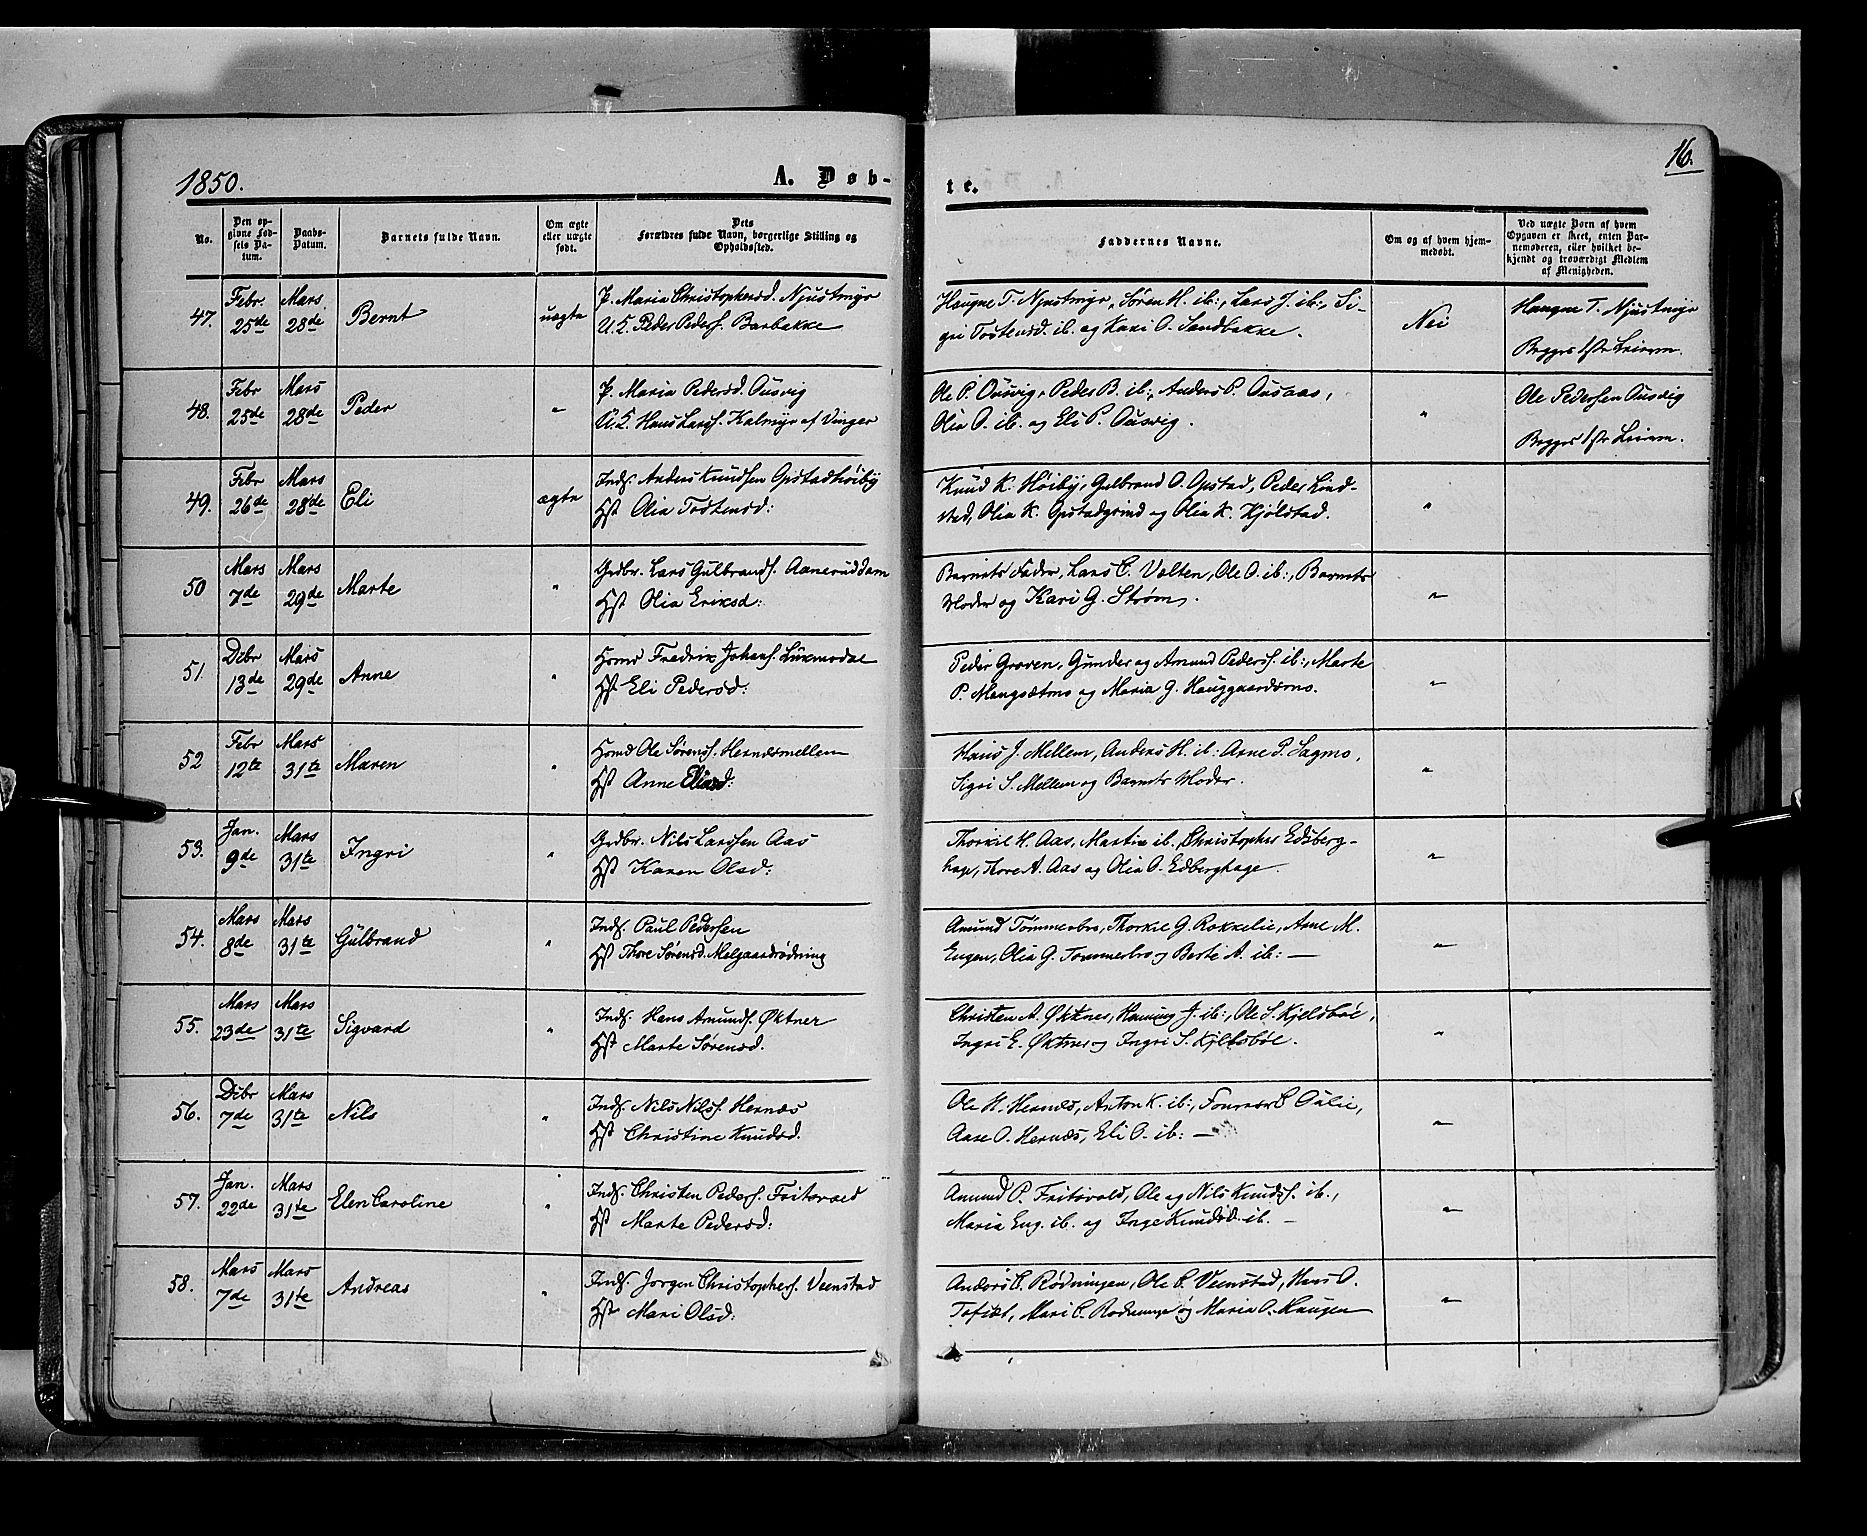 1850.
A. Døb-
te.
16.
No.
Den op-
givne Fød-
sels Da-
tum.
Daabs-
Datum.
Barnets fulde Navn.
Om ægte
eller uægte
født.
Dets
Forældres fulde Navn, borgerlige Stilling og
Opholdssted.
Faddernes Navne.
Om og af hvem hjem-
medøbt.
Ved uægte Børn af hvem
Opgaven er skeet, enten Bar-
nemoderen, eller hvilket be-
kjendt og troværdigt Medlem
af Menigheden.
47. Febr. 25de Mars 28de Bernt uægte
P. Maria Christophersd. Njustmyr
U.K. Peder Peders. Barbakke
Haagne T. Njustmyr, Søren H. ib:, Lars J. ib:, Si-
gri Tostensd. ib. og Kari O. Sandbakke.
Nei
Haagne T. Njustmyr
Begges 1ste Leierm.
48. Febr 25de Mars 28de Peder "
P. Maria Pedersd. Ousvig
U.K. Hans Lars. Kalmyr af Vinger
Ole P. Ousvig, Peder B. ib:, Anders P. Ousaas,
Olia O. ib. og Eli P. Ousvig.
"
Ole Pedersen Ousvig
Begges 1ste Leierm.
49. Febr 26de Mars 28de Eli ægte
Inds. Anders Knudsen Opstadhøiby
Hst Olia Tostensd:
Knud K. Høiby, Gulbrand O. Opstad, Peder Lind-
stad, Olia K. Opstadgrind og Olia K. Kjølstad.
"
50 Mars 7de Mars 29de Marte "
Grdbr. Lars Gulbrands. Aaneruddam
Hst Olia Eriksd:
Barnets Fader, Lars C. Valten, Ole O. ib:, Barnets
Moder og Kari G. Strøm.
"
51. Dcbr 13de Mars 29de Anne "
Homd Fredrik Johans. Luxmodal
Hst Eli Pedersd:
Peder Graven, Gunder og Amund Peders. ib:, Marte
P. Mangsætmo og Maria G. Hauggaardsmo.
"
52 Febr 12te Mars 31te Maren "
Homd Ole Sørens. Hernæsmellem
Hst Anne Eliasd:
Hans J. Mellem, Anders H. ib: Arne P. Sagmo,
Sigri S. Mellem og Barnets Moder.
"
53. Jan. 9de Mars 31te Ingri "
Grdbr. Nils Larssen Aas
Hst Karen Olsd:
Thorkil H. Aas, Martin ib., Christopher Edsberg-
hage, Tore A. Aas og Olia O. Edberghage.
"
54. Mars 8de Mars 31te Gulbrand "
Inds. Paul Pedersen
Hst Thore Sørensd. Melgaardrødning
Amund Tømmerbro, Thorkil G. Rokkelie, Arne M.
Eugen, Olia G. Tømmerbro og Berte A. ib: —
"
55. Mars 23de Mars 31te Sigvard "
Inds. Hans Amunds. Øktner
Hst Marte Sørensd.
Christen A. Øktner, Henning J. ib:, Ole S. Kjeldsbøe,
Ingri E. Øktner og Ingri S. Kjeldsbøe.
"
56. Dcbr 7de Mars 31te Nils "
Inds. Nils Nils. Hernæs
Hst Christine Knudsd.
Ole H. Hernæs, Anton K. ib:, C. Oulie,
Aase O. Hernæs, Eli O. ib: —
"
57. Jan. 22de Mars 31te Elen Caroline "
Inds. Christen Peders. Fritsvold
Hst Marte Pedersd:
Amund P. Fritsvold, Ole og Nils Knuds. ib.,
Maria Eng. ib. og Inge Knudsd. ib. —
"
58. Mars 7de Mars 31te Andreas "
Inds. Jørgen Christophers. Veenstad
Hst Mari Olsd:
Anders C. Rødningen, Ole C. Veenstad, Hans O.
Toftet, Mari C. Rødninge og Maria O. Haugen
"